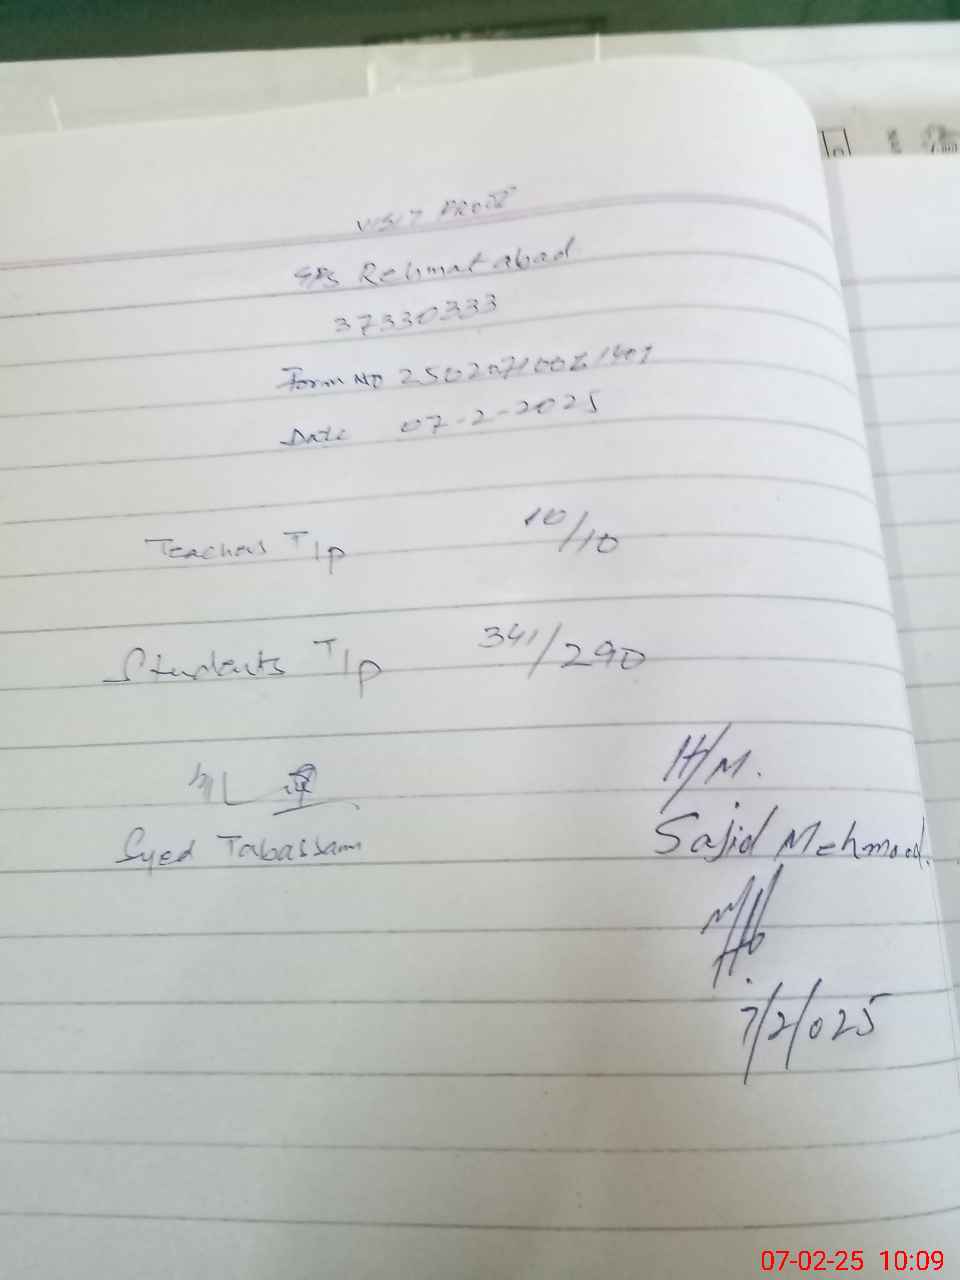 VISIT PROOF
GPS Rehmatabad
37330333
Form No
Date 07-2-2025
Teachers T/p 10/10
Students T/p 341/290
Syed Tabassam
H/M.
Sajid Mehmood.
7/2/025
07-02-25 10:09